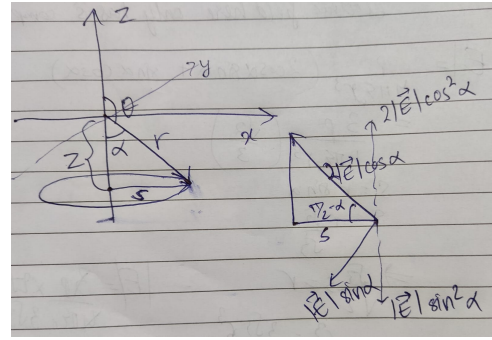 z
y
θ
x
z
α
r
s
2|E⃗|cos²α
2|E⃗|cosα
π/2-α
s
|E⃗|sinα
|E⃗|sin²α